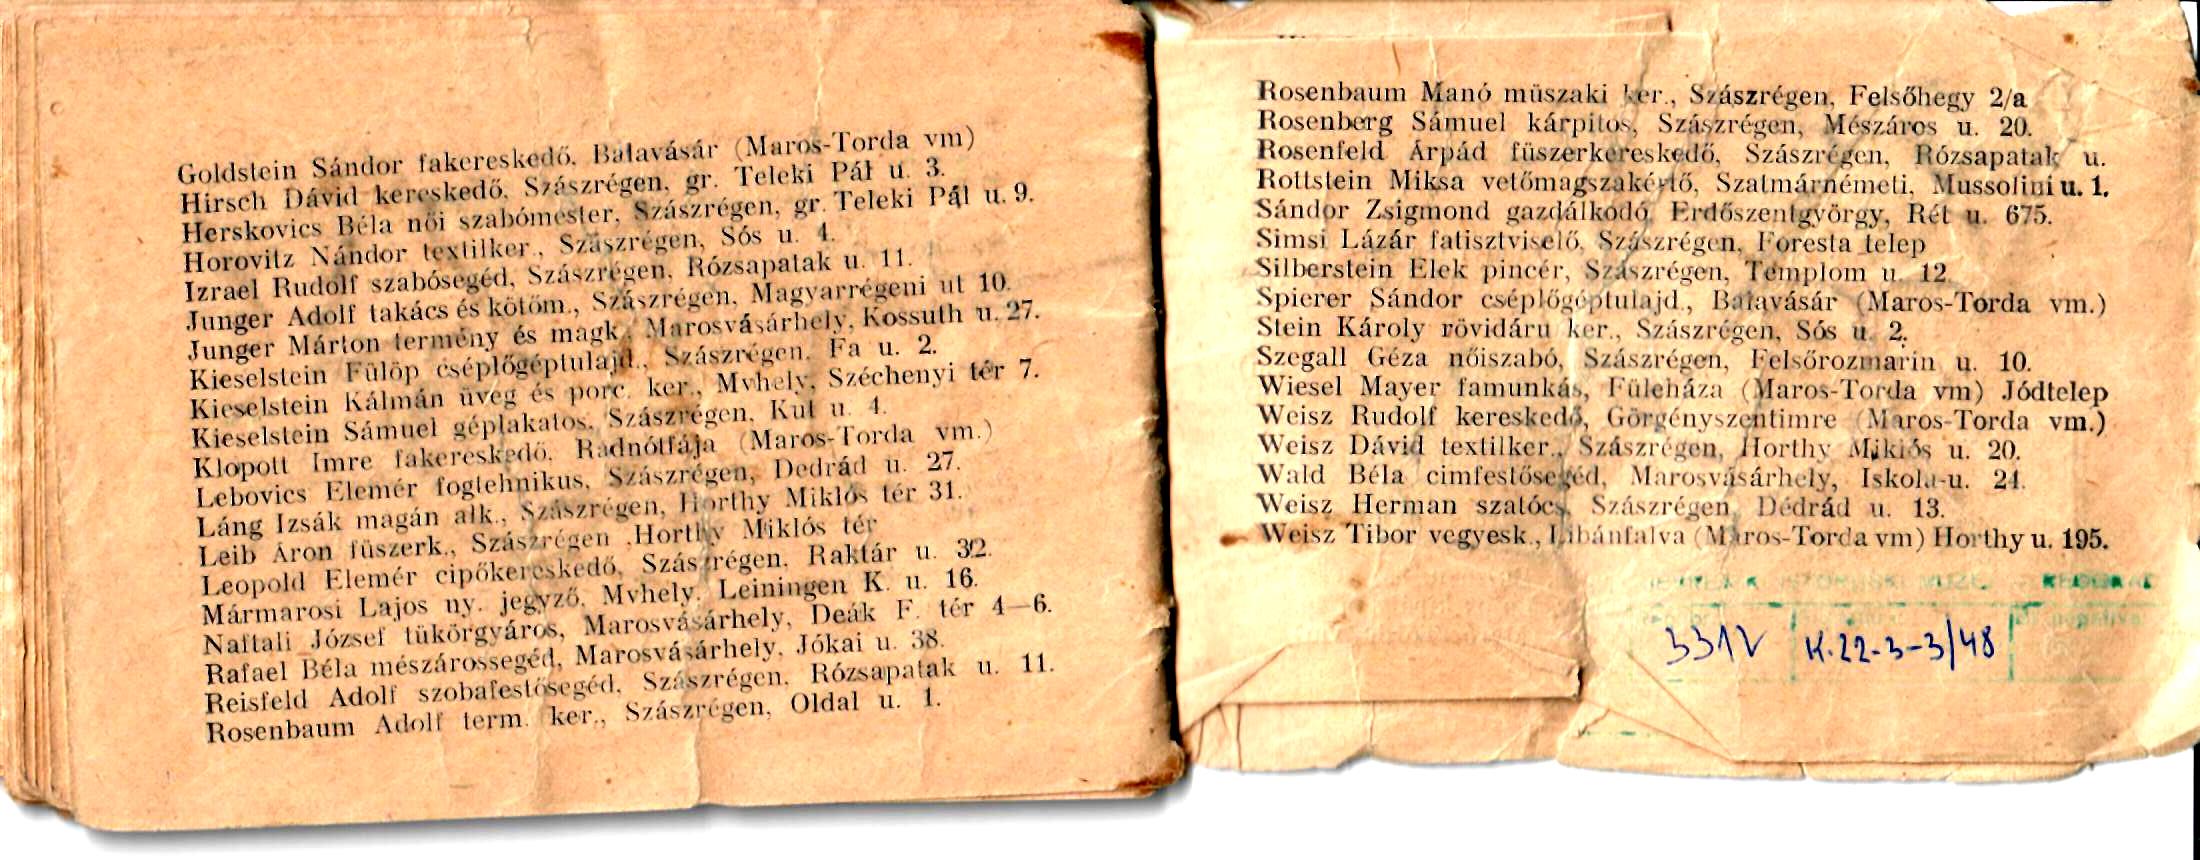 Goldstein Sándor fakereskedő, Balavásár (Maros-Torda vm)
Hirsch Dávid kereskedő, Szászrégen, gr. Teleki Pál u. 3.
Herskovics Béla női szabómester, Szászrégen, gr. Teleki Pál u. 9.
Horovitz Nándor textilker., Szászrégen, Sós u. 4.
Izrael Rudolf szabósegéd, Szászrégen, Rózsapatak u. 11.
Junger Adolf takács és kötőm., Szászrégen, Magyarrégeni ut 10.
Junger Márton termény és magk., Marosvásárhely, Kossuth u. 27.
Kieselstein Fülöp cséplőgéptulajd., Szászrégen, Fa u. 2.
Kieselstein Kálmán üveg és porc. ker., Mvhely, Széchenyi tér 7.
Kieselstein Sámuel géplakatos, Szászrégen, Kut u. 4.
Klopott Imre fakereskedő, Radnótfája (Maros-Torda vm.)
Lebovics Elemér fogtehnikus, Szászrégen, Dedrád u. 27.
Láng Izsák magán alk., Szászrégen, Horthy Miklós tér 31.
Leib Áron füszerk., Szászrégen ,Horthy Miklós tér
Leopold Elemér cipőkereskedő, Szászrégen, Raktár u. 32.
Mármarosi Lajos ny. jegyző, Mvhely, Leiningen K. u. 16.
Naftali József tükörgyáros, Marosvásárhely, Deák F. tér 4—6.
Rafael Béla mészárossegéd, Marosvásárhely, Jókai u. 38.
Reisfeld Adolf szobafestősegéd, Szászrégen, Rózsapatak u. 11.
Rosenbaum Adolf term. ker., Szászrégen, Oldal u. 1.
Rosenbaum Manó müszaki ker., Szászrégen, Felsőhegy 2/a
Rosenberg Sámuel kárpitos, Szászrégen, Mészáros u. 20.
Rosenfeld Árpád füszerkereskedő, Szászrégen, Rózsapatak u.
Rottstein Miksa vetőmagszakértő, Szatmárnémeti, Mussolini u. 1.
Sándor Zsigmond gazdálkodó, Erdőszentgyörgy, Rét u. 675.
Simsi Lázár fatisztviselő, Szászrégen, Foresta telep
Silberstein Elek pincér, Szászrégen, Templom u. 12.
Spierer Sándor cséplőgéptulajd., Balavásár (Maros-Torda vm.)
Stein Károly rövidáru ker., Szászrégen, Sós u. 2.
Szegall Géza nőiszabó, Szászrégen, Felsőrozmarin u. 10.
Wiesel Mayer famunkás, Füleháza (Maros-Torda vm) Jódtelep
Weisz Rudolf kereskedő, Görgényszentimre (Maros-Torda vm.)
Weisz Dávid textilker., Szászrégen, Horthy Miklós u. 20.
Wald Béla cimfestősegéd, Marosvásárhely, Iskola-u. 24.
Weisz Herman szatócs, Szászrégen, Dédrád u. 13.
Weisz Tibor vegyesk., Libánfalva (Maros-Torda vm) Horthy u. 195.
K.22-3-3/48